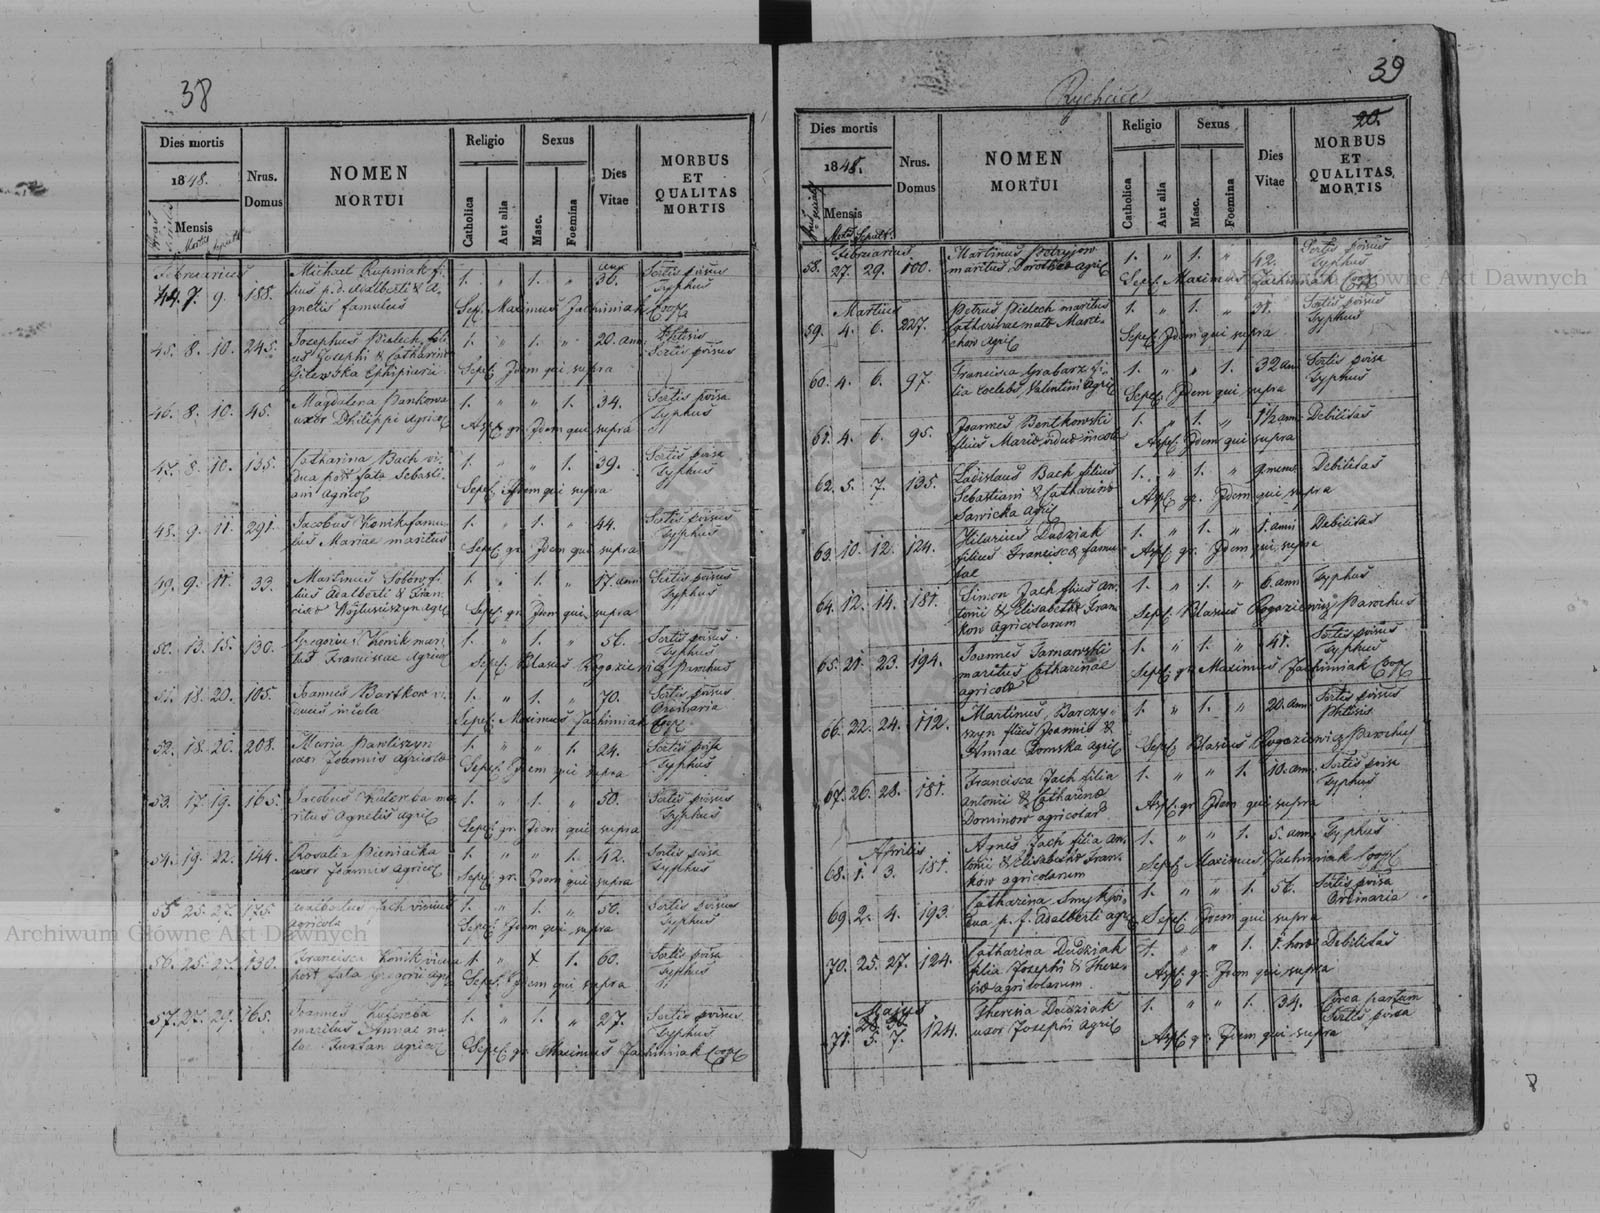 38
Dies mortis
1848.
Mensis
Nrus.
Domus
NOMEN
MORTUI
Religio
Catholica
Aut alia
Sexus
Masc.
Foemina
Dies
Vitae
MORBUS
ET
QUALITAS
MORTIS
Februarius
44. 7. 9. 188. Michael Rupniak fi- 1. " 1. " 30. Sortis provisus
lius p. d. Adalberti & A- Typhus
gnetis famulus Sep. Maximus Jachimiak Coop
45. 8. 10. 245. Josephus Pielech fili- 1. " 1. " 20. ann Phtisis
us Josephi & Catharina Sortis provisus
Gilewska Ephipiarii Sepel. Idem qui supra
46. 8. 10. 45. Magdalena Pankowa 1. " " 1. 34. Sortis provisa
uxor Philippi Agricol Asp. gr. Idem qui supra Typhus
47. 8. 10. 135. Catharina Bach vi- 1. " " 1. 39. Sortis provisa
dua post fata Sebasti- Typhus
ani Agricol Sepel. Idem qui supra
48. 9. 11. 291. Jacobus Konik famu- 1. " 1. " 44. Sortis provisus
lus Mariae maritus Sepel. gr. Idem qui supra Typhus
49. 9. 11. 33. Martinus Sobów fi- 1. " 1. " 17. ann Sortis provisus
lius Adalberti & Fran- Typhus
ciscae Agric Sepel. gr. Idem qui supra
50. 13. 15. 130. Gregorius Konik mari 1. " 1. " 56. Sortis provisus
tus Franciscae Agricol Sepel. Blasius Rogoziewicz Parochus Typhus
51. 18. 20. 105. Joannes Bartkow vi- 1. " 1. " 70. Sortis provisus
duus incola Sepel. Maximus Jachimiak Coop Ordinaria
52. 18. 20. 208. Maria Pawliszyn 1. " " 1. 24. Sortis provisa
uxor Joannis Agricolae Sepel. Idem qui supra Typhus
53. 17. 19. 165. Jacobus Kuterba ma- 1. " 1. " 50. Sortis provisus
ritus Agnetis Agric Sepel. gr. Idem qui supra Typhus
54. 19. 22. 144. Rosalia Pieniacka 1. " " 1. 42. Sortis provisa
uxor Joannis Agricol Sepel. gr. Idem qui supra Typhus
55. 25. 27. 175. Jach viduus 1. " 1. " 50. Sortis provisus
agricola Sepel. Idem qui supra Typhus
56. 25. 27. 130. Francisca Konik vidua 1. " x 1. 60. Sortis provisa
post fata Gregorii Agr Sepel. Idem qui supra Typhus
57. 27. 29. 165. Joannes Kuterba 1. " 1. " 27. Sortis provisus
maritus Annae na- Typhus
tae Furtan agricol Sepel. gr. Maximus Jachimiak Coop
39
Rychcice
20.
Dies mortis
1848.
Mensis
Nrus.
Domus
NOMEN
MORTUI
Religio
Catholica
Aut alia
Sexus
Masc.
Foemina
Dies
Vitae
MORBUS
ET
QUALITAS
MORTIS
Februarius
58. 27. 29. 100. Martinus Petryjow 1. " 1. " 42. Sortis provisus
maritus Dorotheae Agric Sepel. Maximus Jachimiak Coop Typhus
Martius
59. 4. 6. 227. Petrus Pielech maritus 1. " 1. " 31. Sortis provisus
Catharinae natae Marci- Typhus
chow Agric Sepel. Idem qui supra
60. 4. 6. 97. Francisca Grabarz fi- 1. " " 1. 32 ann Sortis provisa
lia coelebs Valentini Agric Sepel. Idem qui supra Typhus
61. 4. 6. 95. Joannes Bentkowski 1. " 1. " 1½ ann Debilitas
filius Mariae viduae incolae Asp. Idem qui supra
62. 5. 7. 135. Ladislaus Bach filius 1. " 1. " 9. mens Debilitas
Sebastiani & Catharinae
Sawicka Agric Asp. gr. Idem qui supra
63. 10. 12. 124. Hilarius Dudziak 1. " 1. " 1. anni Debilitas
filius Franciscae famu- Asp. gr. Idem qui supra
lae
64. 12. 14. 181. Simon Jach filius An- 1. " 1. " 6. ann Typhus
tonii & Elisabethae Fran-
kow Agricolarum Sepel. Blasius Rogoziewicz Parochus
65. 21. 23. 194. Joannes Tarnawski 1. " 1. " 41. Sortis provisus
maritus Catharinae Typhus
agricola Sepel. gr. Maximus Jachimiak Coop
66. 22. 24. 112. Martinus Barczy- 1. " 1. " 20. ann Sortis provisus
szyn filius Joannis & Phtisis
Annae Domska Agric Sepel. Blasius Rogoziewicz Parochus
67. 26. 28. 181. Francisca Jach filia 1. " " 1. 10. ann. Sortis provisa
Antonii & Catharinae Typhus
Dominow agricolar Asp. gr. Idem qui supra
Aprilis
68. 1. 3. 181. Agnes Jach filia An- 1. " " 1. 5. ann Typhus
tonii & Elisabethae Fran-
kow agricolarum Sepel. Maximus Jachimiak Coop
69. 2. 4. 193. Catharina Smyk vi- 1. " " 1. 56. Sortis provisa
dua p. f. Adalberti agric Sepel. Idem qui supra Ordinaria
70. 25. 27. 124. Catharina Dudziak 1. " " 1. 1. hora Debilitas
filia Josephi & There-
siae agricolarum Asp. gr. Idem qui supra
Majus
71. 5. 7. 124. Theresia Dudziak 1. " " 1. 34. Circa partum
uxor Josephi Agric Asp. gr. Idem qui supra Sortis provisa
Archiwum Główne Akt Dawnych
Archiwum Główne Akt Dawnych